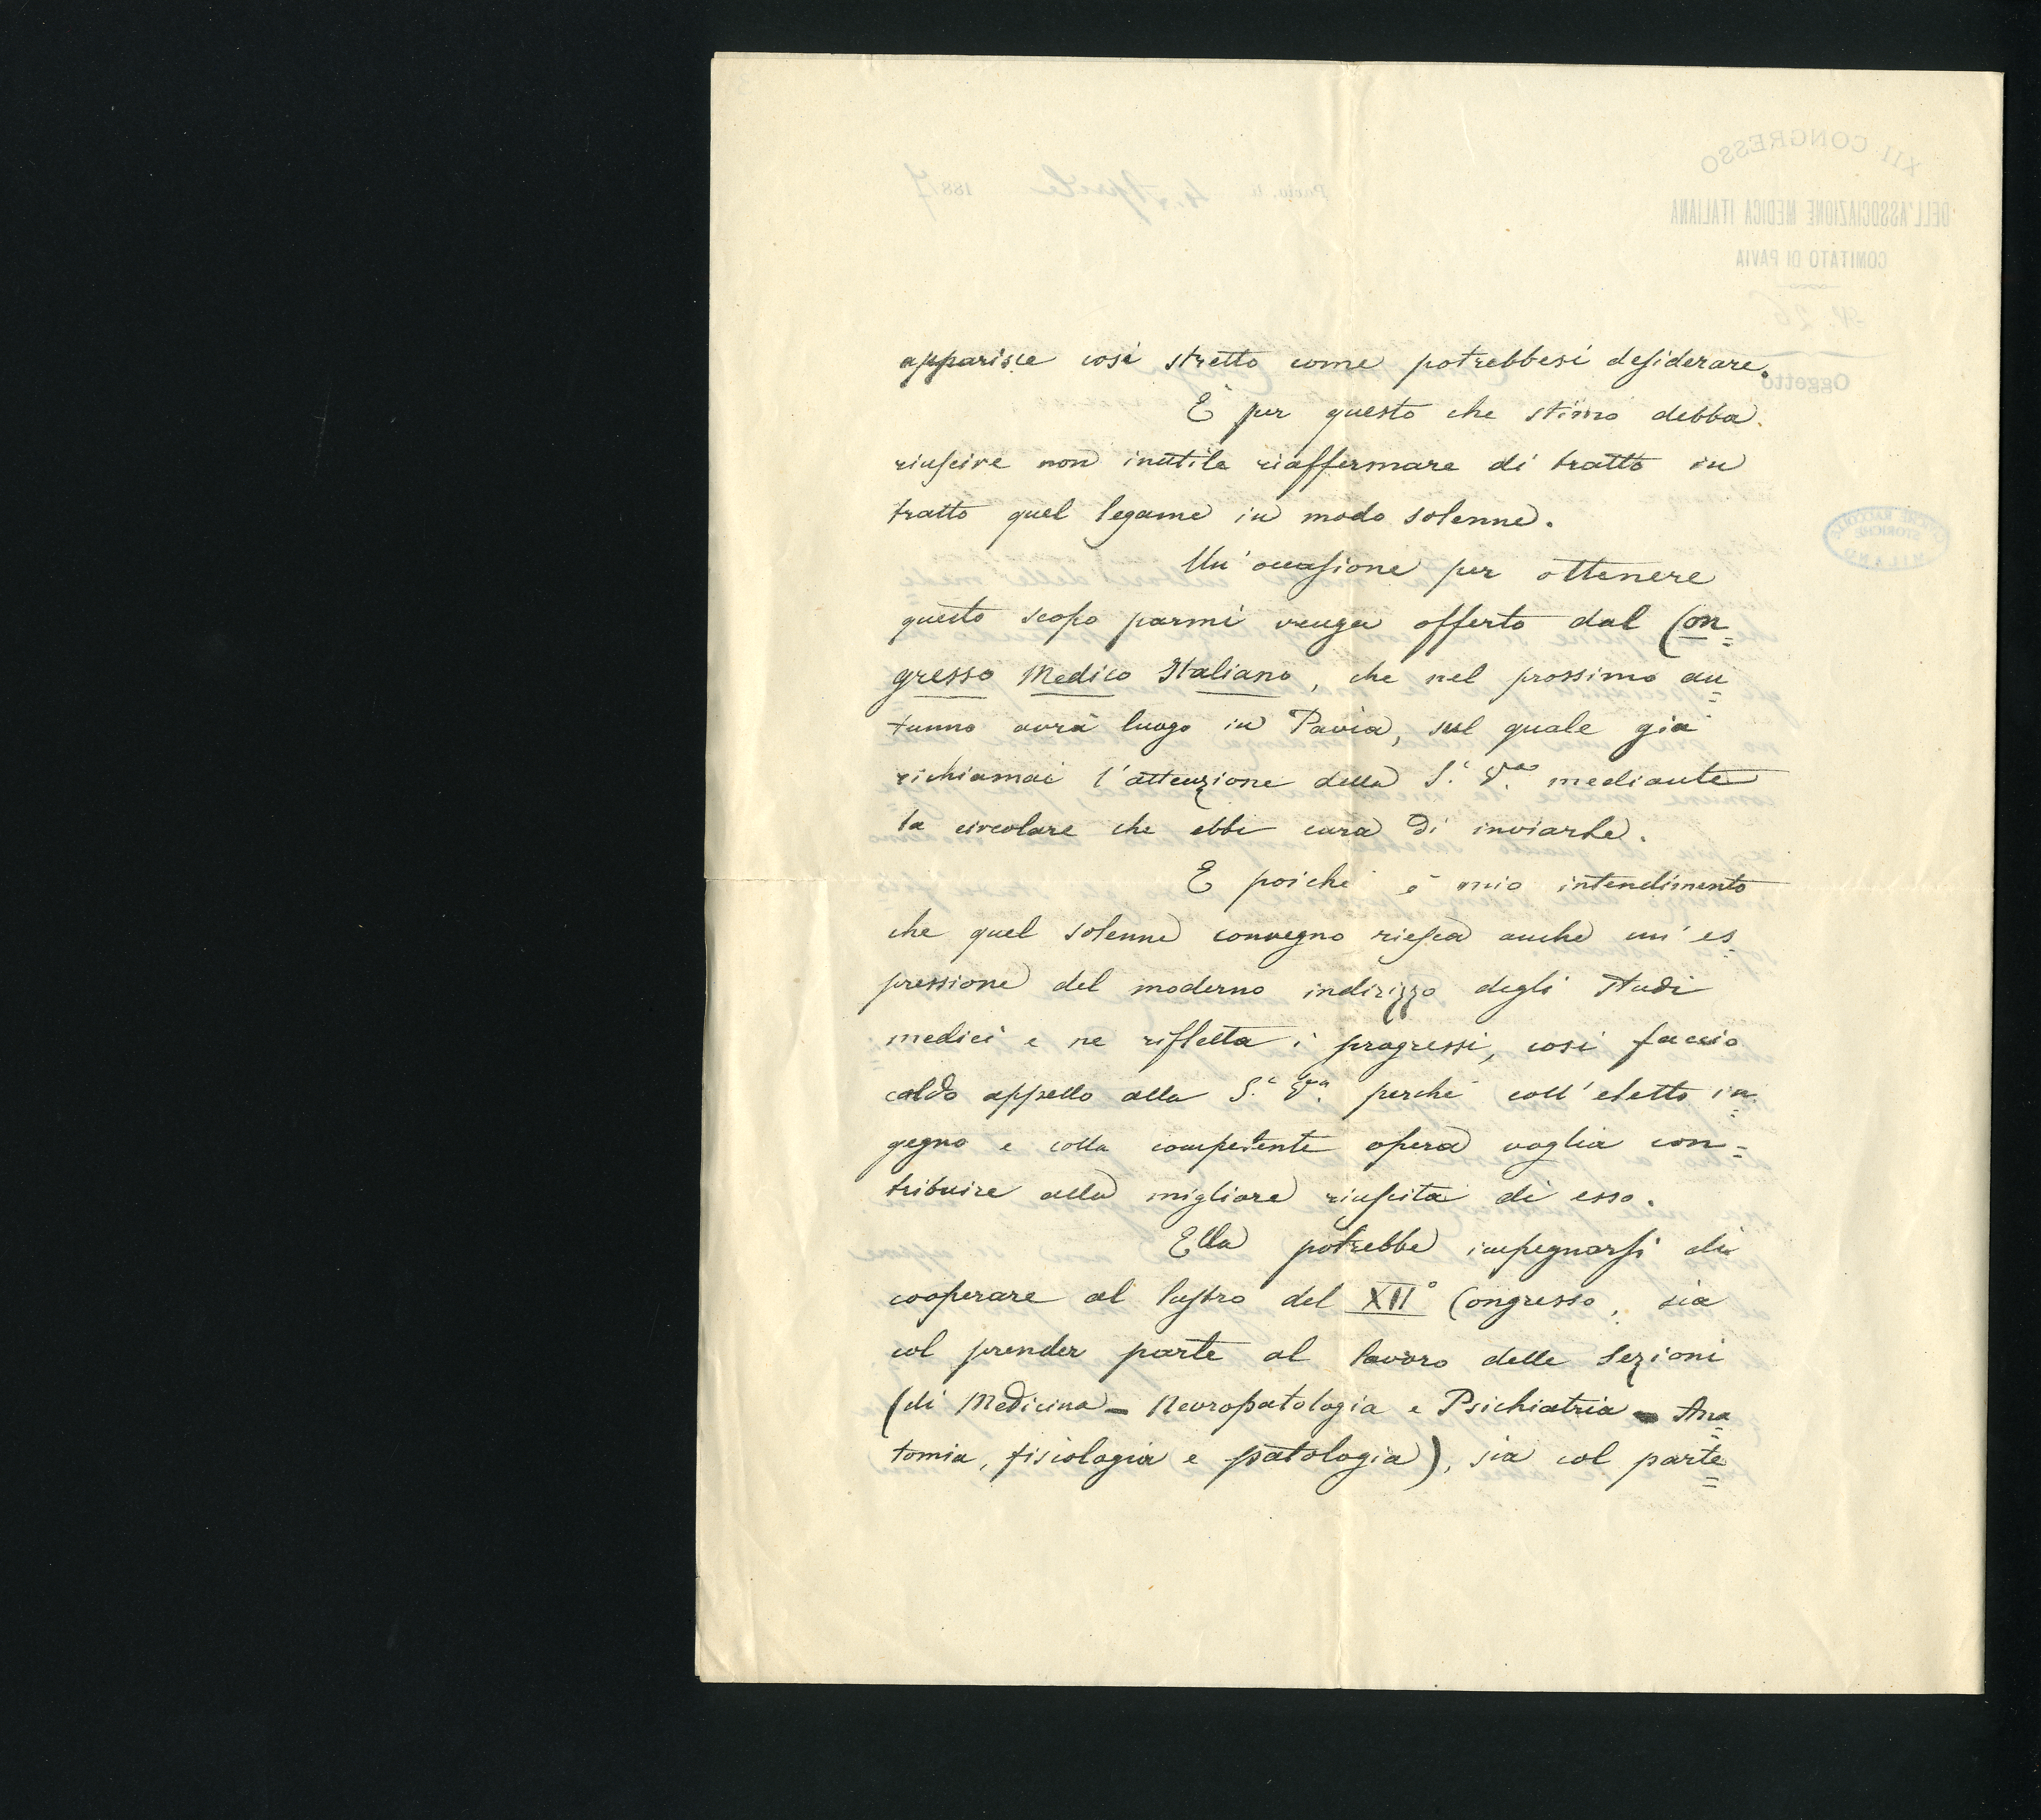 apparisce così stretto come potrebbesi desiderare.
È per questo che stimo debba
riuscire non inutile riaffermare di tratto in
tratto quel legame in modo solenne.
Un'occasione per ottenere
questo scopo parmi venga offerto dal Con=
gresso Medico Italiano, che nel prossimo au=
tunno avrà luogo in Pavia, sul quale già
richiamai l'attenzione della S.ª V.ra mediante
la circolare che ebbi cura di inviarle.
E poichè è mio intendimento
che quel solenne convegno riesca anche un'es=
pressione del moderno indirizzo degli studi
medici e ne rifletta i progressi, così faccio
caldo appello alla S.ª V.ra perchè coll'eletto in=
gegno e colla competente opera voglia con=
tribuire alla migliore riuscita di esso.
Ella potrebbe impegnarsi di
cooperare al lustro del XII° Congresso, sia
col prender parte al lavoro delle Sezioni
(di Medicina - Neuropatologia e Psichiatria - Ana=
tomia, fisiologia e patologia), sia col parte=
XII CONGRESSO
DELL'ASSOCIAZIONE MEDICA ITALIANA
COMITATO DI PAVIA
N. 26
Oggetto
Pavia, li 4 Aprile 1887
CIVICHE RACCOLTE
STORICHE
MILANO